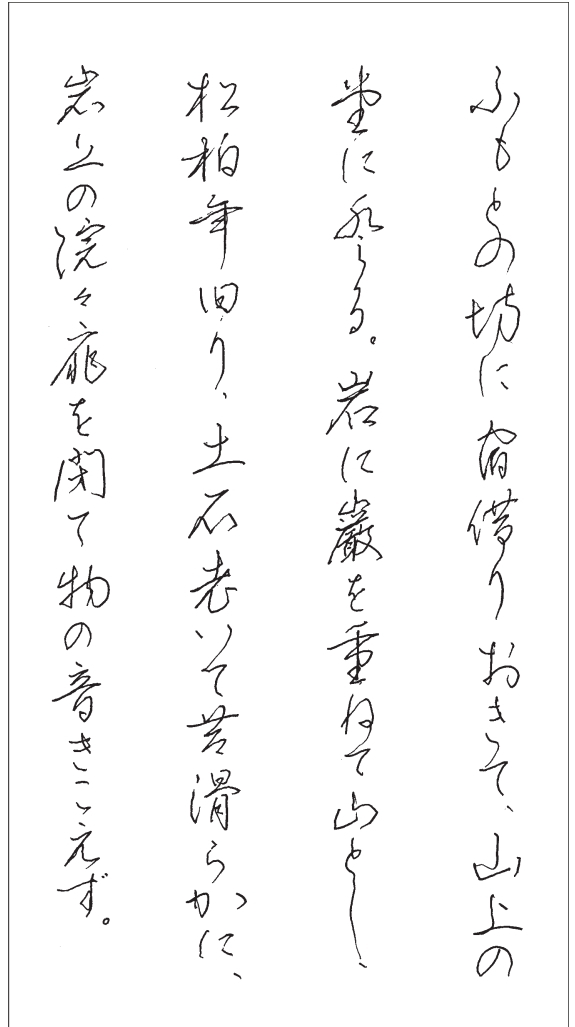 ふもとの坊に宿借りおきて、山上の
堂に登る。岩に巌を重ねて山とし、
松柏年旧り、土石老いて苔滑らかに、
岩上の院々扉を閉て物の音きこえず。